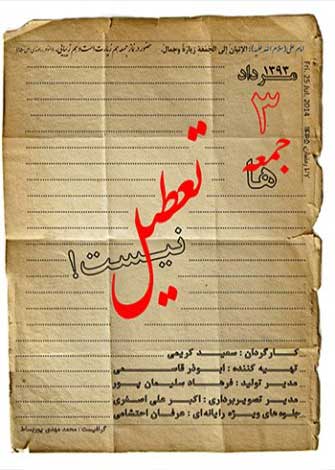 امام علی (سلام الله علیه): الاتیان إلی الجُمُعَة زیارةٌ وجمال. حضور در نماز جمعه هم زیارت است و هم زیبایی.
Fri, 25 Jul, 2014
۱۳۹۳
مرداد
۳
جمعه
ها
تعطیل
نیست!
کارگردان: سعید کریمی
تهیه کننده: ابوذر قاسمی
مدیر تولید: فرهاد سلیمان پور
مدیر تصویربرداری: اکبر علی اصغری
جلوه های ویژه رایانه ای: عرفان احتشامی
گرافیست: محمد مهدی پوربساط